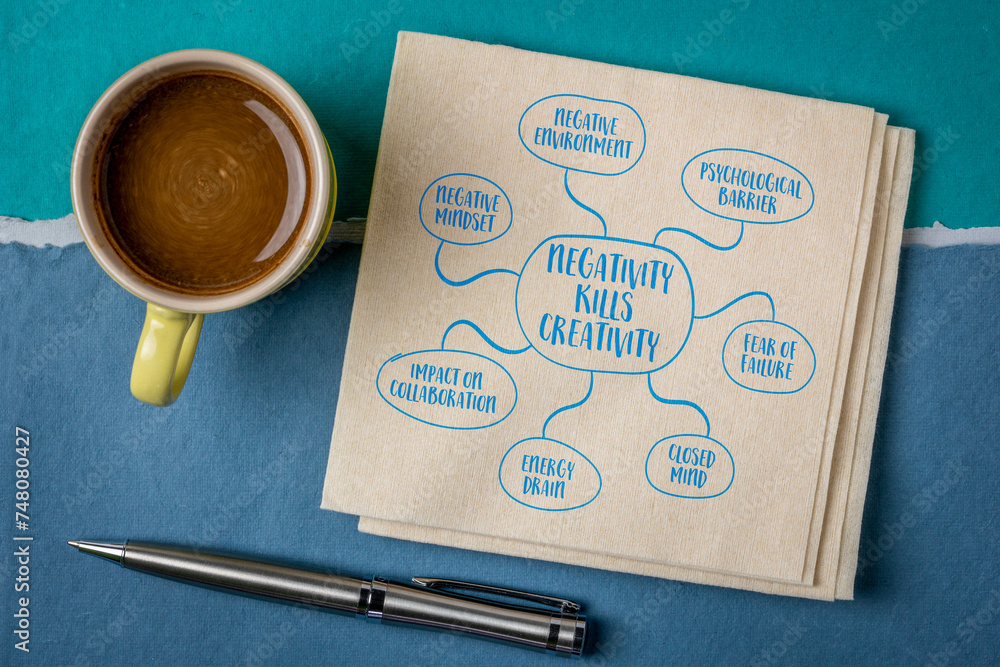 NEGATIVE
ENVIRONMENT
PSYCHOLOGICAL
BARRIER
NEGATIVE
MINDSET
NEGATIVITY
KILLS
CREATIVITY
FEAR OF
FAILURE
IMPACT ON
COLLABORATION
CLOSED
MIND
ENERGY
DRAIN
Adobe Stock | #748080427
Adobe Stock